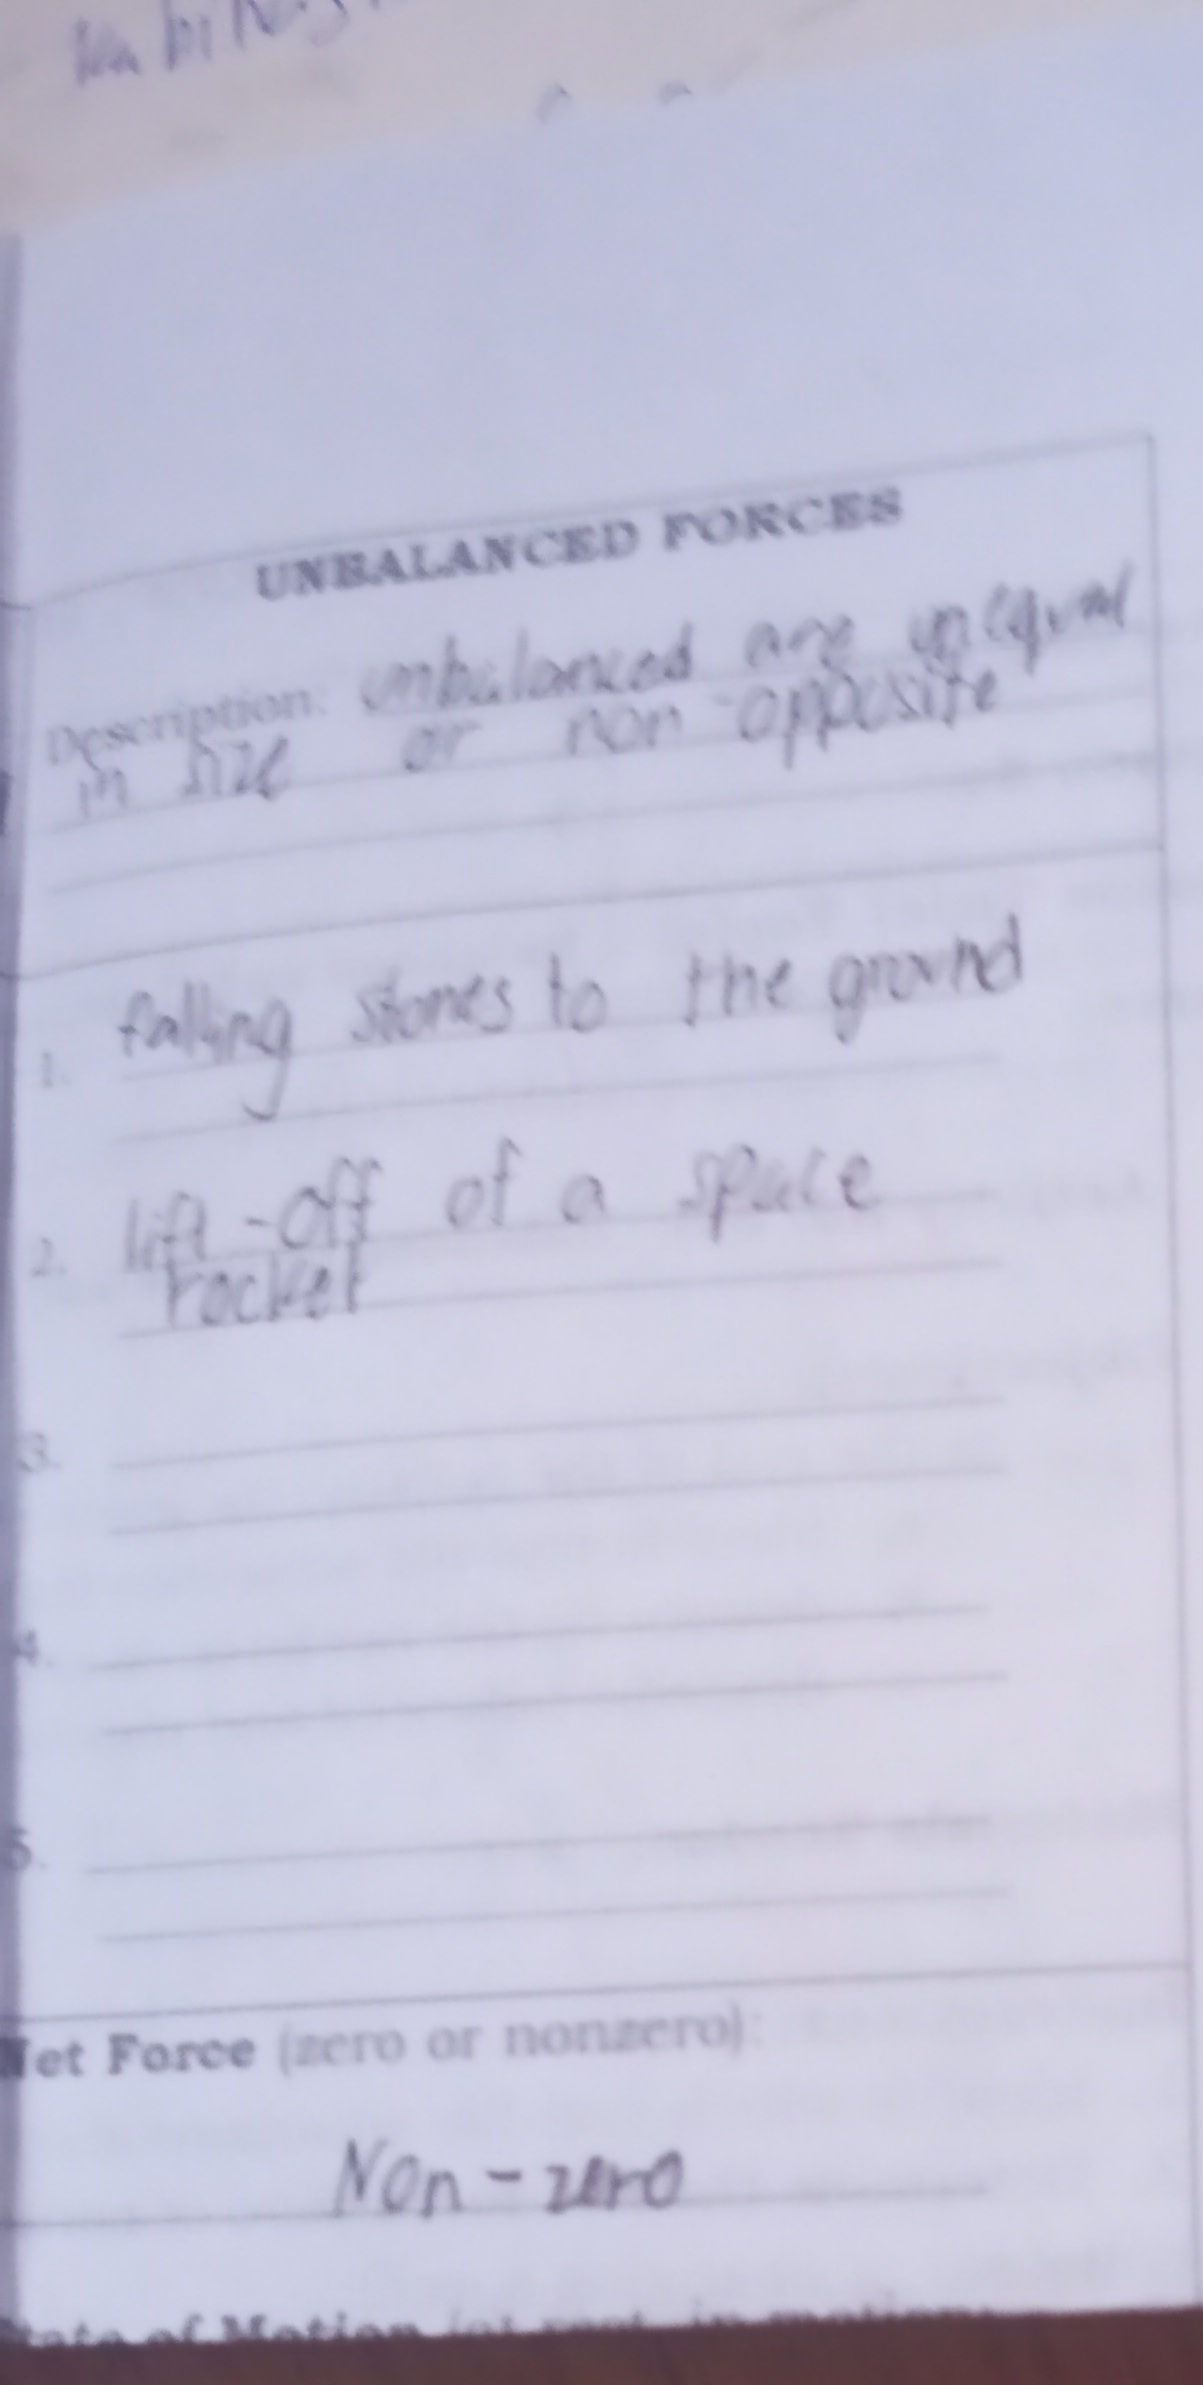 UNBALANCED FORCES
Description: unbalanced are unequal
in size or non-opposite
1. falling stones to the ground
2. lift-off of a space
rocket
3.
4.
5.
Net Force (zero or nonzero):
Non-zero
State of Motion (at rest, in motion